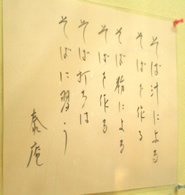 そば汁による
そばを作る
そば粉による
そばを作る
そば打ちは
そばに習う
泰庵